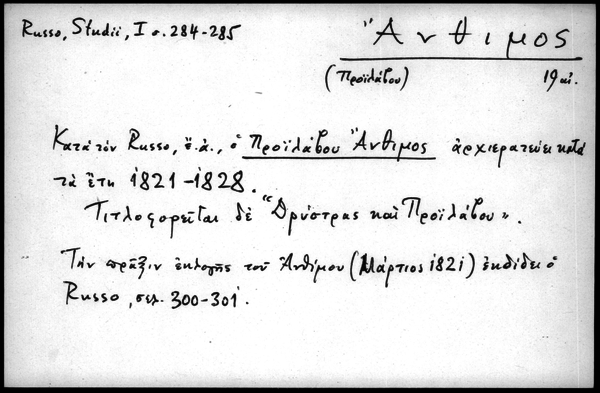 Russo, Studii, I σ. 284-285
Ἄνθιμος
(Προϊλάβου) 19 αἰ.
Κατὰ τὸν Russo, ἔ.ἀ., ὁ Προϊλάβου Ἄνθιμος ἀρχιερατεύει κατὰ
τὰ ἔτη 1821-1828.
Τιτλοφορεῖται δὲ "Δρύστρας καὶ Προϊλάβου".
Τὴν πρᾶξιν ἐκλογῆς τοῦ Ἀνθίμου (Μάρτιος 1821) ἐκδίδει ὁ
Russo, σελ. 300-301.